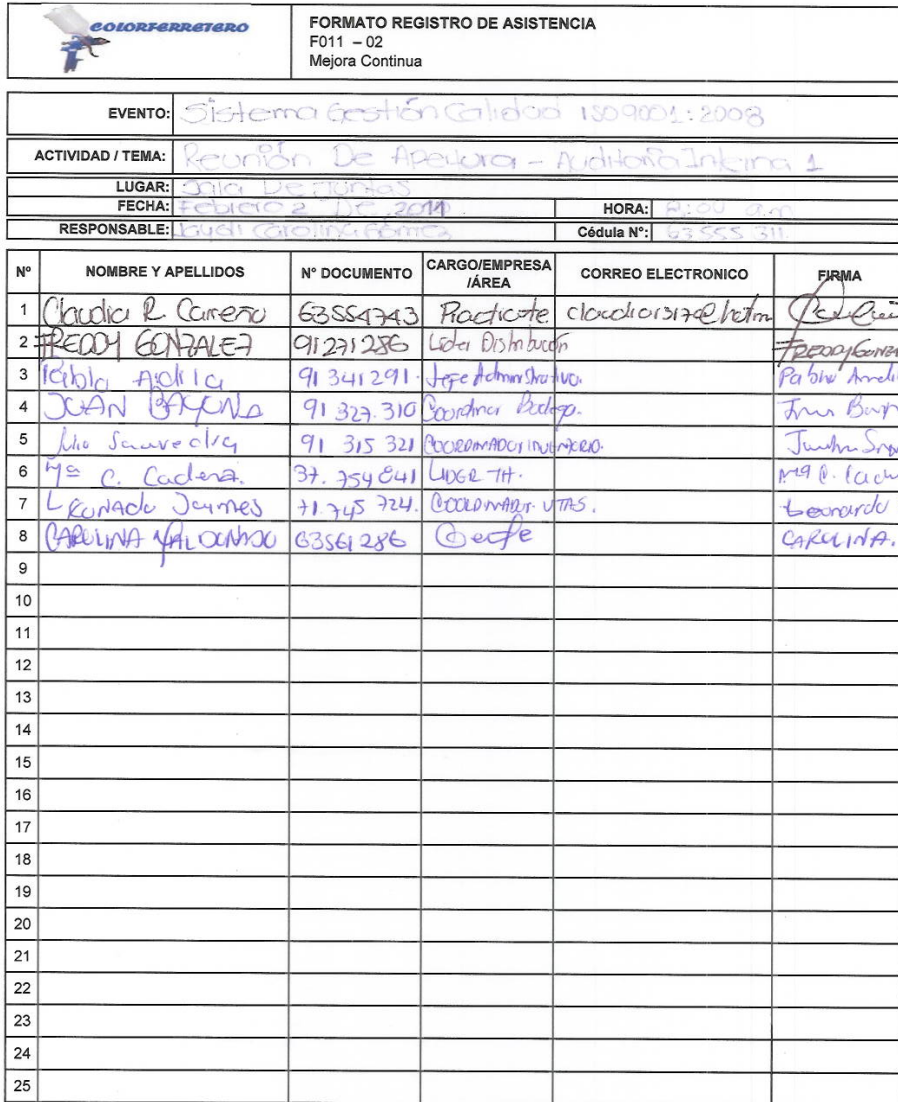 COLORFERRETERO
FORMATO REGISTRO DE ASISTENCIA
F011 – 02
Mejora Continua
EVENTO: Sistema Gestión Calidad ISO9001:2008
ACTIVIDAD / TEMA: Reunión De Apertura - Auditoría Interna 1
LUGAR: Sala De Juntas
FECHA: Febrero 2 De 2011. HORA: :00 a.m
RESPONSABLE: Carolina Gómez Cédula N°: 63 555 311.
N° NOMBRE Y APELLIDOS N° DOCUMENTO CARGO/EMPRESA /ÁREA CORREO ELECTRONICO FIRMA
1 Claudia R Carreño 63554743 Practicante claudia1317@hotm
2 FREDDY GONZALEZ 91271286 Lider Distribución FREDDY GONZA
3 91 341 291. Jefe Administrativo. Pablo
4 JUAN BAYONA 91 327.310 Coordinar Bodega.
5 Julio Saavedra 91 315 321 COORDINADOR INVENTARIO.
6 Mª C. Cadena. 37.754841 LIDER TH. Mª C.
7 Leonardo Jaimes 71.745 724. COORDINADOR VTAS. Leonardo
8 CAROLINA MALDONADO 63561286 CAROLINA.
9
10
11
12
13
14
15
16
17
18
19
20
21
22
23
24
25